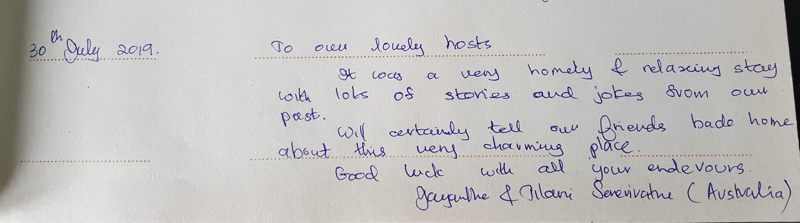 30th July 2019.
To our lovely hosts
It was a very homely & relaxing stay
with lots of stories and jokes from our
past.
Will certainly tell our friends back home
about this very charming place.
Good luck with all your endevours.
& (Australia)